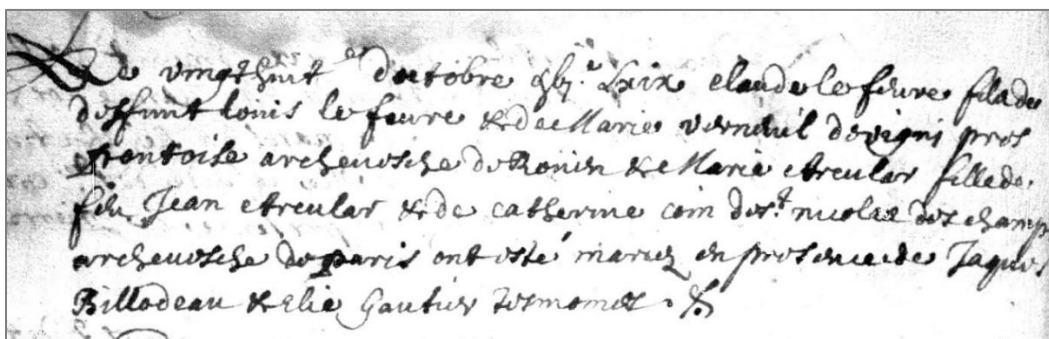 Le vingthuit.e doctobre gbj.c Lxix claude lefeuvre filsde
deffunt louis lefeuvre & de Marie verneuil devigni pres
pontoise archevesche de Rouen & Marie Arcular fillede
feu Jean Arcular & de catherine coin de st nicolas des champ
archevesche de paris ont esté mariez en presence de Jaques
Billodeau & Elie Gautier tesmoines.